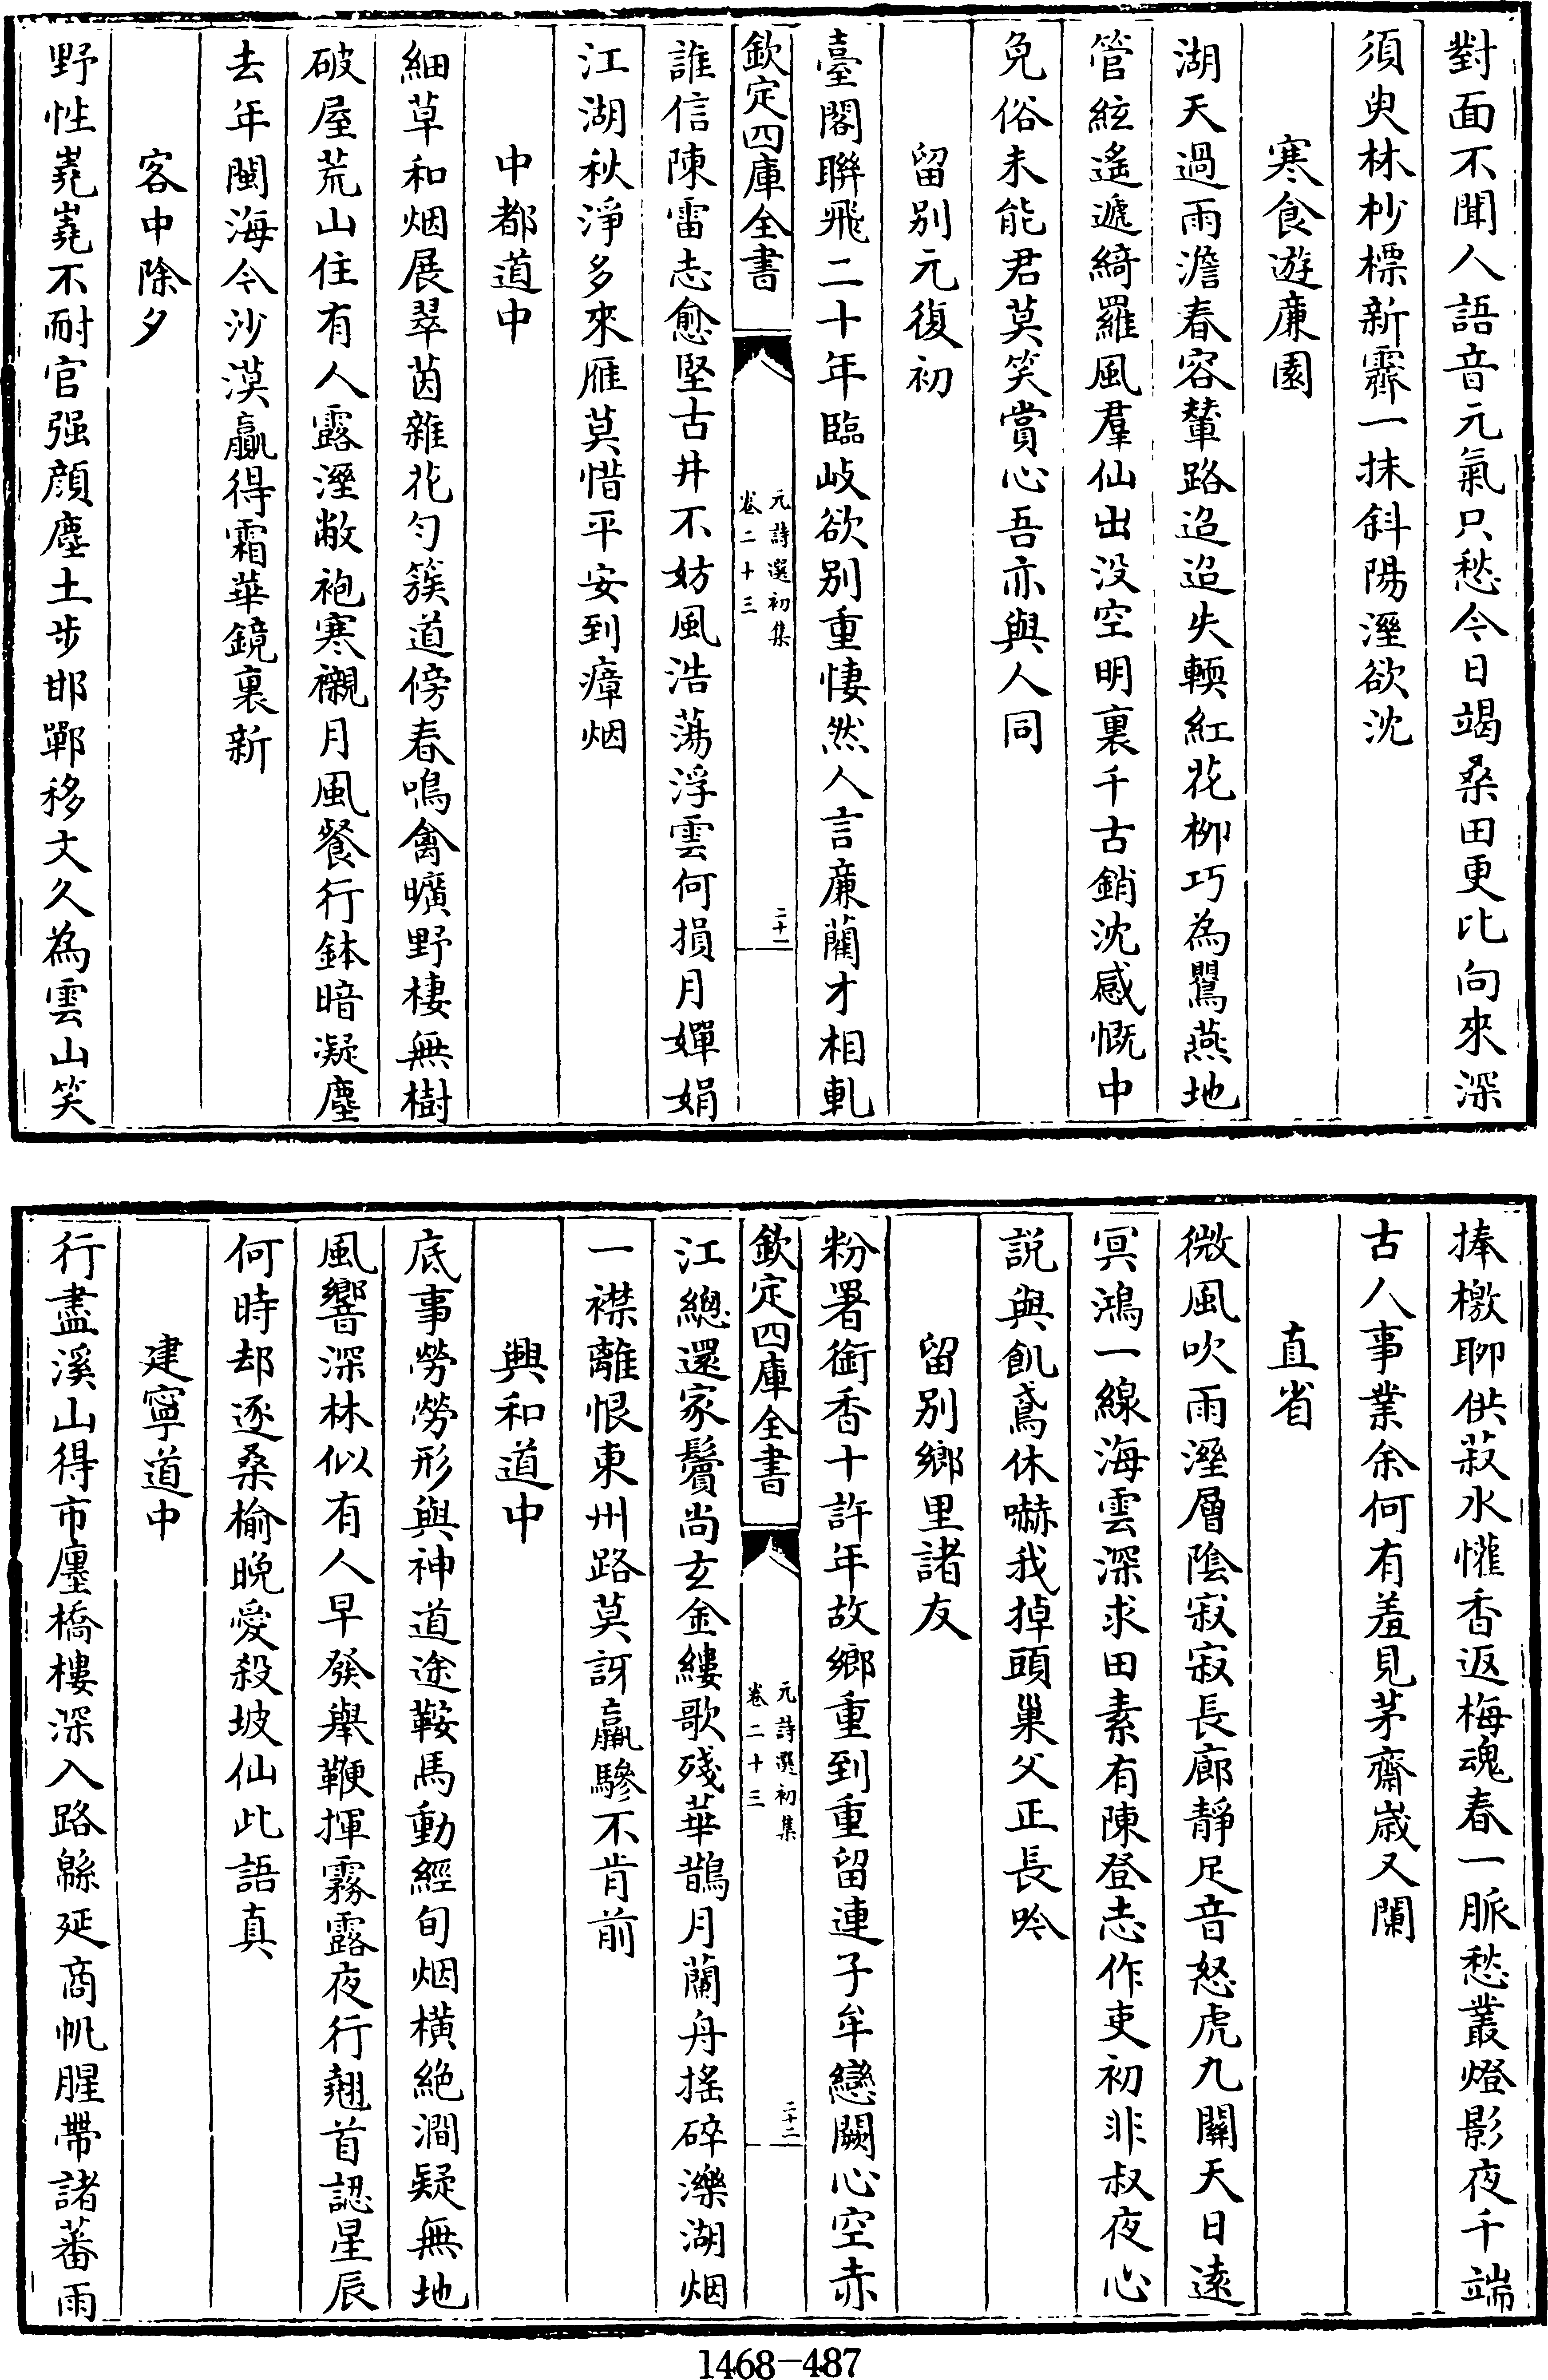 對面不聞人語音元氣只愁今日竭桑田更比向來深
須臾林杪標新霽一抹斜陽溼欲沈
寒食遊廉園
湖天過雨澹春容輦路迢迢失輭紅花柳巧為鸎燕地
管絃遙遞綺羅風羣仙出没空明裏千古銷沈感慨中
免俗未能君莫笑賞心吾亦與人同
留别元復初
臺閣聯飛二十年臨岐欲别重悽然人言廉藺才相軋
欽定四庫全書
元詩選初集
卷二十三
二十一
誰信陳雷志愈堅古井不妨風浩蕩浮雲何損月嬋娟
江湖秋淨多來雁莫惜平安到瘴烟
中都道中
細草和烟展翠茵雜花勻簇道傍春鳴禽曠野棲無樹
破屋荒山住有人露溼敝袍寒襯月風餐行鉢暗凝塵
去年閩海今沙漠贏得霜華鏡裏新
客中除夕
野性嶤嶤不耐官强顔塵土步邯鄲移文久為雲山笑
捧檄聊供菽水懽香返梅魂春一脈愁叢燈影夜千端
古人事業余何有羞見茅齋歲又闌
直省
微風吹雨溼層陰寂寂長廊靜足音怒虎九關天日遠
冥鴻一線海雲深求田素有陳登志作吏初非叔夜心
説與飢鳶休嚇我掉頭巢父正長吟
留别鄉里諸友
粉署銜香十許年故鄉重到重留連子牟戀闕心空赤
欽定四庫全書
元詩選初集
卷二十三
二十二
江總還家鬢尚玄金縷歌殘華鵲月蘭舟搖碎濼湖烟
一襟離恨東州路莫訝羸驂不肯前
興和道中
底事勞勞形與神道途鞍馬動經旬烟横絶澗疑無地
風響深林似有人早發舉鞭揮霧露夜行翹首認星辰
何時却逐桑榆晚愛殺坡仙此語真
建寧道中
行盡溪山得市廛橋樓深入路緜延商帆腥帶諸蕃雨
1468-487